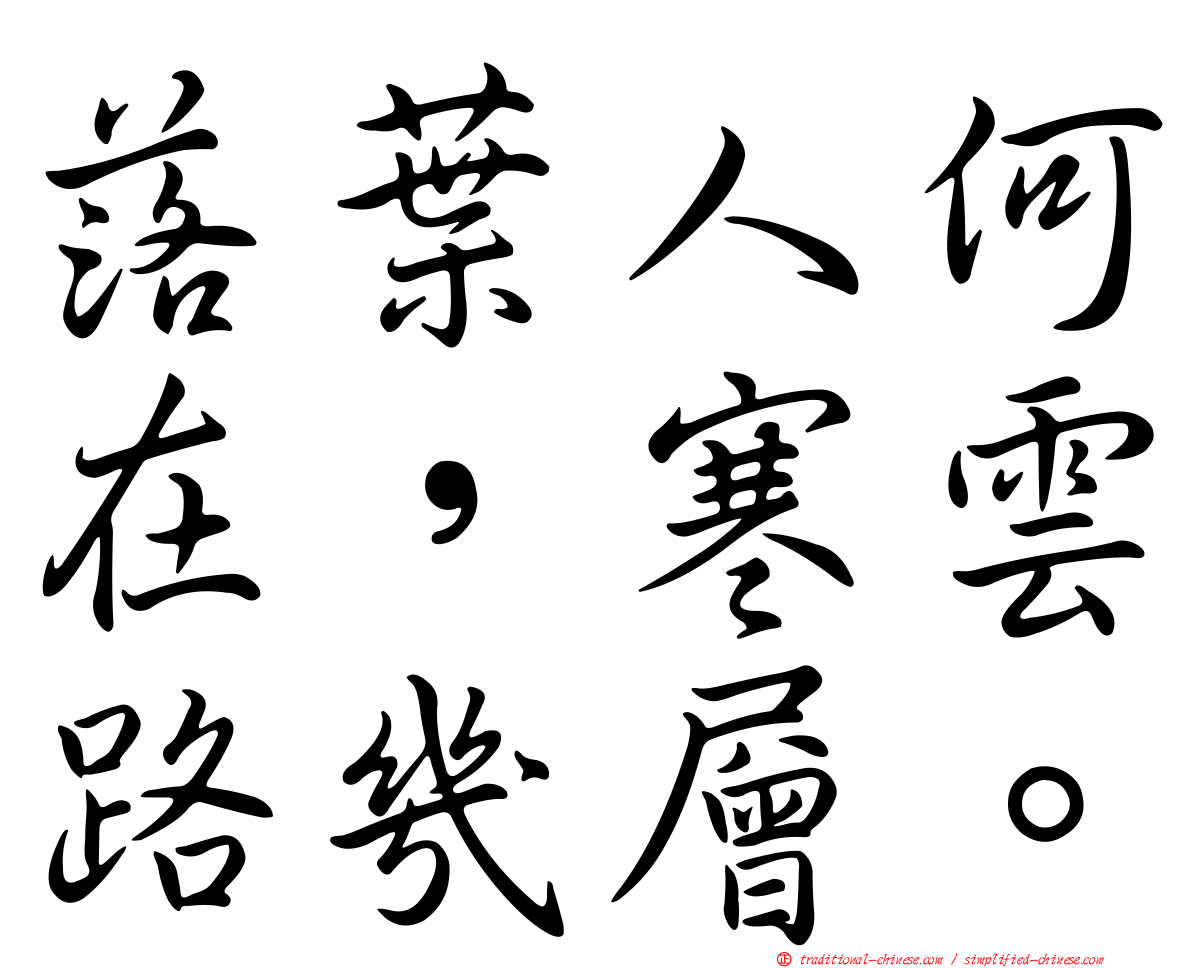 落葉人何
在，寒雲
路幾層。
㊣ traditional-chinese.com / simplified-chinese.com